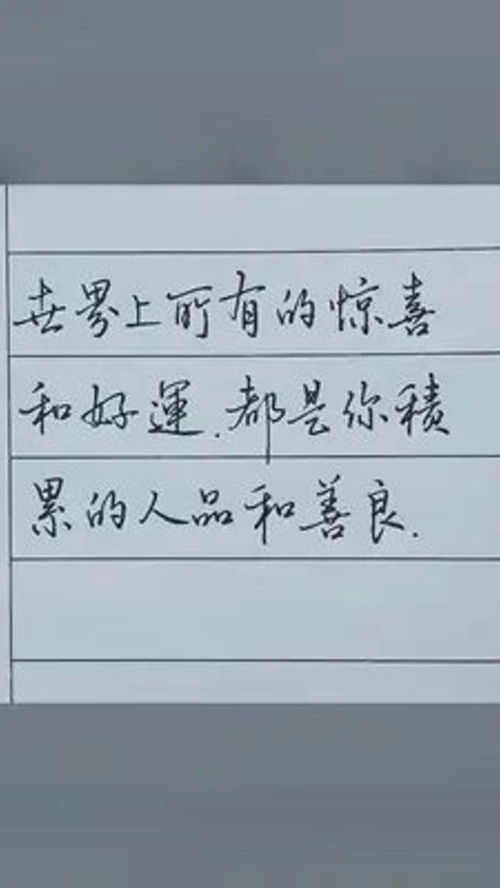 世界上所有的惊喜
和好運.都是你積
累的人品和善良.